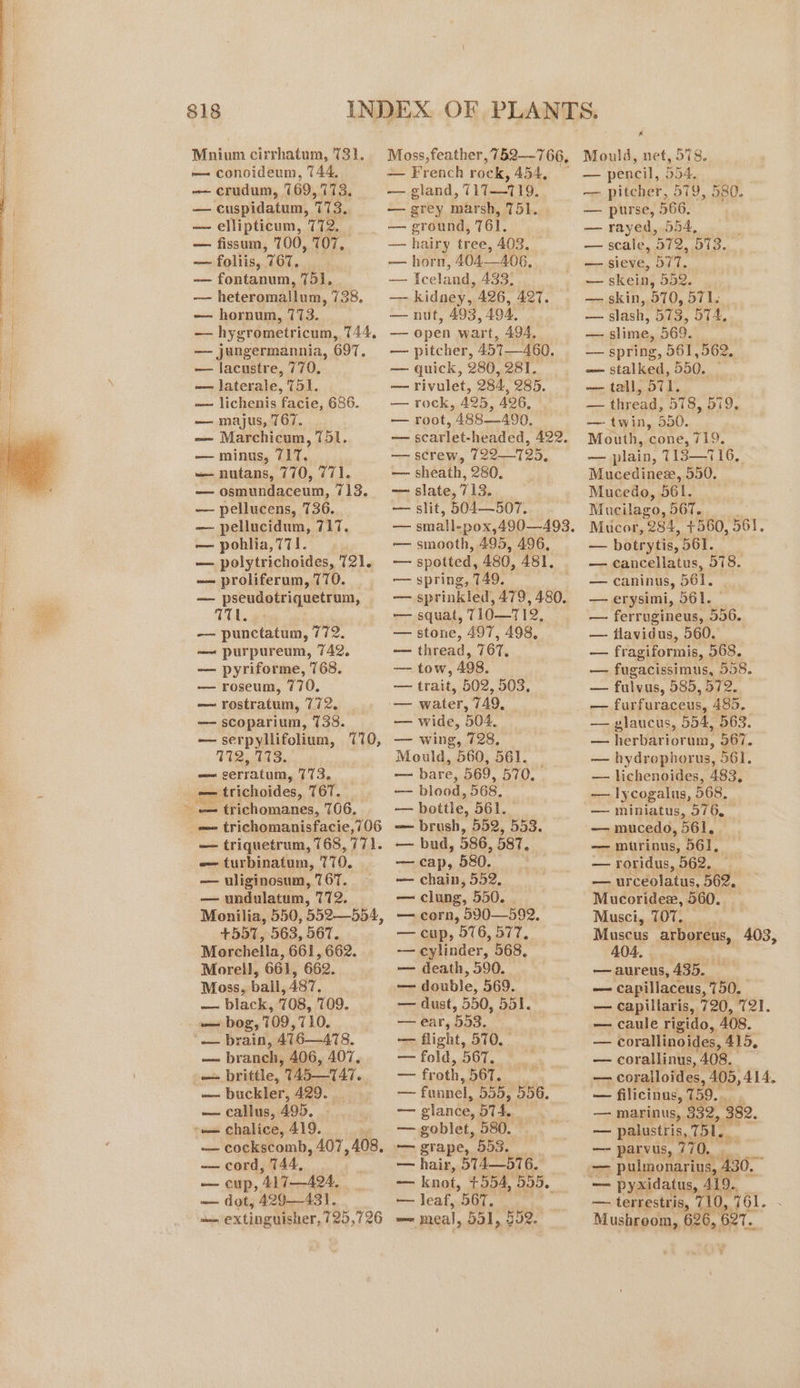 818
INDEX OF PLANTS.
Mnium cirrhatum, 731.
— conoideum, 744.
— crudum, 769, 773.
— cuspidatum, 773.
— ellipticum, 772.
— fissum, 700, 707.
— foliis, 767.
— fontanum, 751.
— heteromallum, 738.
— hornum, 773.
— hygrometricum, 744.
— jungermannia, 697.
— lacustre, 770.
— laterale, 751.
— lichenis facie, 686.
— majus, 767.
— Marchicum, 751.
— minus, 717.
— nutans, 770, 771.
— osmundaceum, 713.
— pellucens, 736.
— pellucidum, 717.
— pohlia, 771.
— polytrichoides, 721.
— proliferum, 770.
— pseudotriquetrum,
771.
— punctatum, 772.
— purpureum, 742.
— pyriforme, 768.
— roseum, 770.
— rostratum, 772.
— scoparium, 738.
— serpyllifolium, 770,
772, 773.
— serratum, 773.
— trichoides, 767.
— trichomanes, 706.
— trichomanisfacie, 706
— triquetrum, 768, 771.
— turbinatum, 770.
— uliginosum, 767.
— undulatum, 772.
Monilia, 550, 552—554,
+557, 563, 567.
Morchella, 661, 662.
Morell, 661, 662.
Moss, ball, 487.
— black, 708, 709.
— bog, 709, 710.
— brain, 476—478.
— branch, 406, 407.
— brittle, 745—747.
— buckler, 429.
— callus, 495.
— chalice, 419.
— cockscomb, 407, 408.
— cord, 744.
— cup, 417—424.
— dot, 429—431.
— extinguisher, 725, 726
Moss, feather, 752—766.
— French rock, 454.
— gland, 717—719.
— grey marsh, 751.
— ground, 761.
— hairy tree, 403.
— horn, 404—406.
— Iceland, 433.
— kidney, 426, 427.
— nut, 493, 494.
— open wart, 494.
— pitcher, 457—460.
— quick, 280, 281.
— rivulet, 284, 285.
— rock, 425, 426.
— root, 488—490.
— scarlet-headed, 422.
— screw, 722—725.
— sheath, 280.
— slate, 713.
— slit, 504—507.
— small-pox, 490—493.
— smooth, 495, 496.
— spotted, 480, 481.
— spring, 749.
— sprinkled, 479, 480.
— squat, 710—712.
— stone, 497, 498.
— thread, 767.
— tow, 498.
— trait, 502, 503.
— water, 749.
— wide, 504.
— wing, 728.
Mould, 560, 561.
— bare, 569, 570.
— blood, 568.
— bottle, 561.
— brush, 552, 553.
— bud, 586, 587.
— cap, 580.
— chain, 552.
— clung, 550.
— corn, 590—592.
— cup, 576, 577.
— cylinder, 568.
— death, 590.
— double, 569.
— dust, 550, 551.
— ear, 553.
— flight, 570.
— fold, 567.
— froth, 567.
— funnel, 555, 556.
— glance, 574.
— goblet, 580.
— grape, 553.
— hair, 574—576.
— knot, +554, 555.
— leaf, 567.
— meal, 551, 552.
Mould, net, 578.
— pencil, 554.
— pitcher, 579, 580.
— purse, 566.
— rayed, 554.
— scale, 572, 573.
— sieve, 577.
— skein, 552.
— skin, 570, 571.
— slash, 573, 574.
— slime, 569.
— spring, 561, 562.
— stalked, 550.
— tall, 571.
— thread, 578, 579.
— twin, 550.
Mouth, cone, 719.
— plain, 713—716.
Mucedineæ, 550.
Mucedo, 561.
Mucilago, 567.
Mucor, 284, +560, 561.
— botrytis, 561.
— cancellatus, 578.
— caninus, 561.
— erysimi, 561.
— ferrugineus, 556.
— flavidus, 560.
— fragiformis, 568.
— fugacissimus, 558.
— fulvus, 585, 572.
— furfuraceus, 485.
— glaucus, 554, 563.
— herbariorum, 567.
— hydrophorus, 561.
— lichenoides, 483.
— lycogalus, 568.
— miniatus, 576.
— mucedo, 561.
— murinus, 561.
— roridus, 562.
— urceolatus, 562.
Mucorideæ, 560.
Musci, 707.
Muscus arboreus, 403,
404.
— aureus, 435.
— capillaceus, 750.
— capillaris, 720, 721.
— caule rigido, 408.
— corallinoides, 415.
— corallinus, 408.
— coralloides, 405, 414.
— filicinus, 759.
— marinus, 332, 382.
— palustris, 751.
— parvus, 770.
— pulmonarius, 430.
— pyxidatus, 419.
— terrestris, 710, 761.
Mushroom, 626, 627.